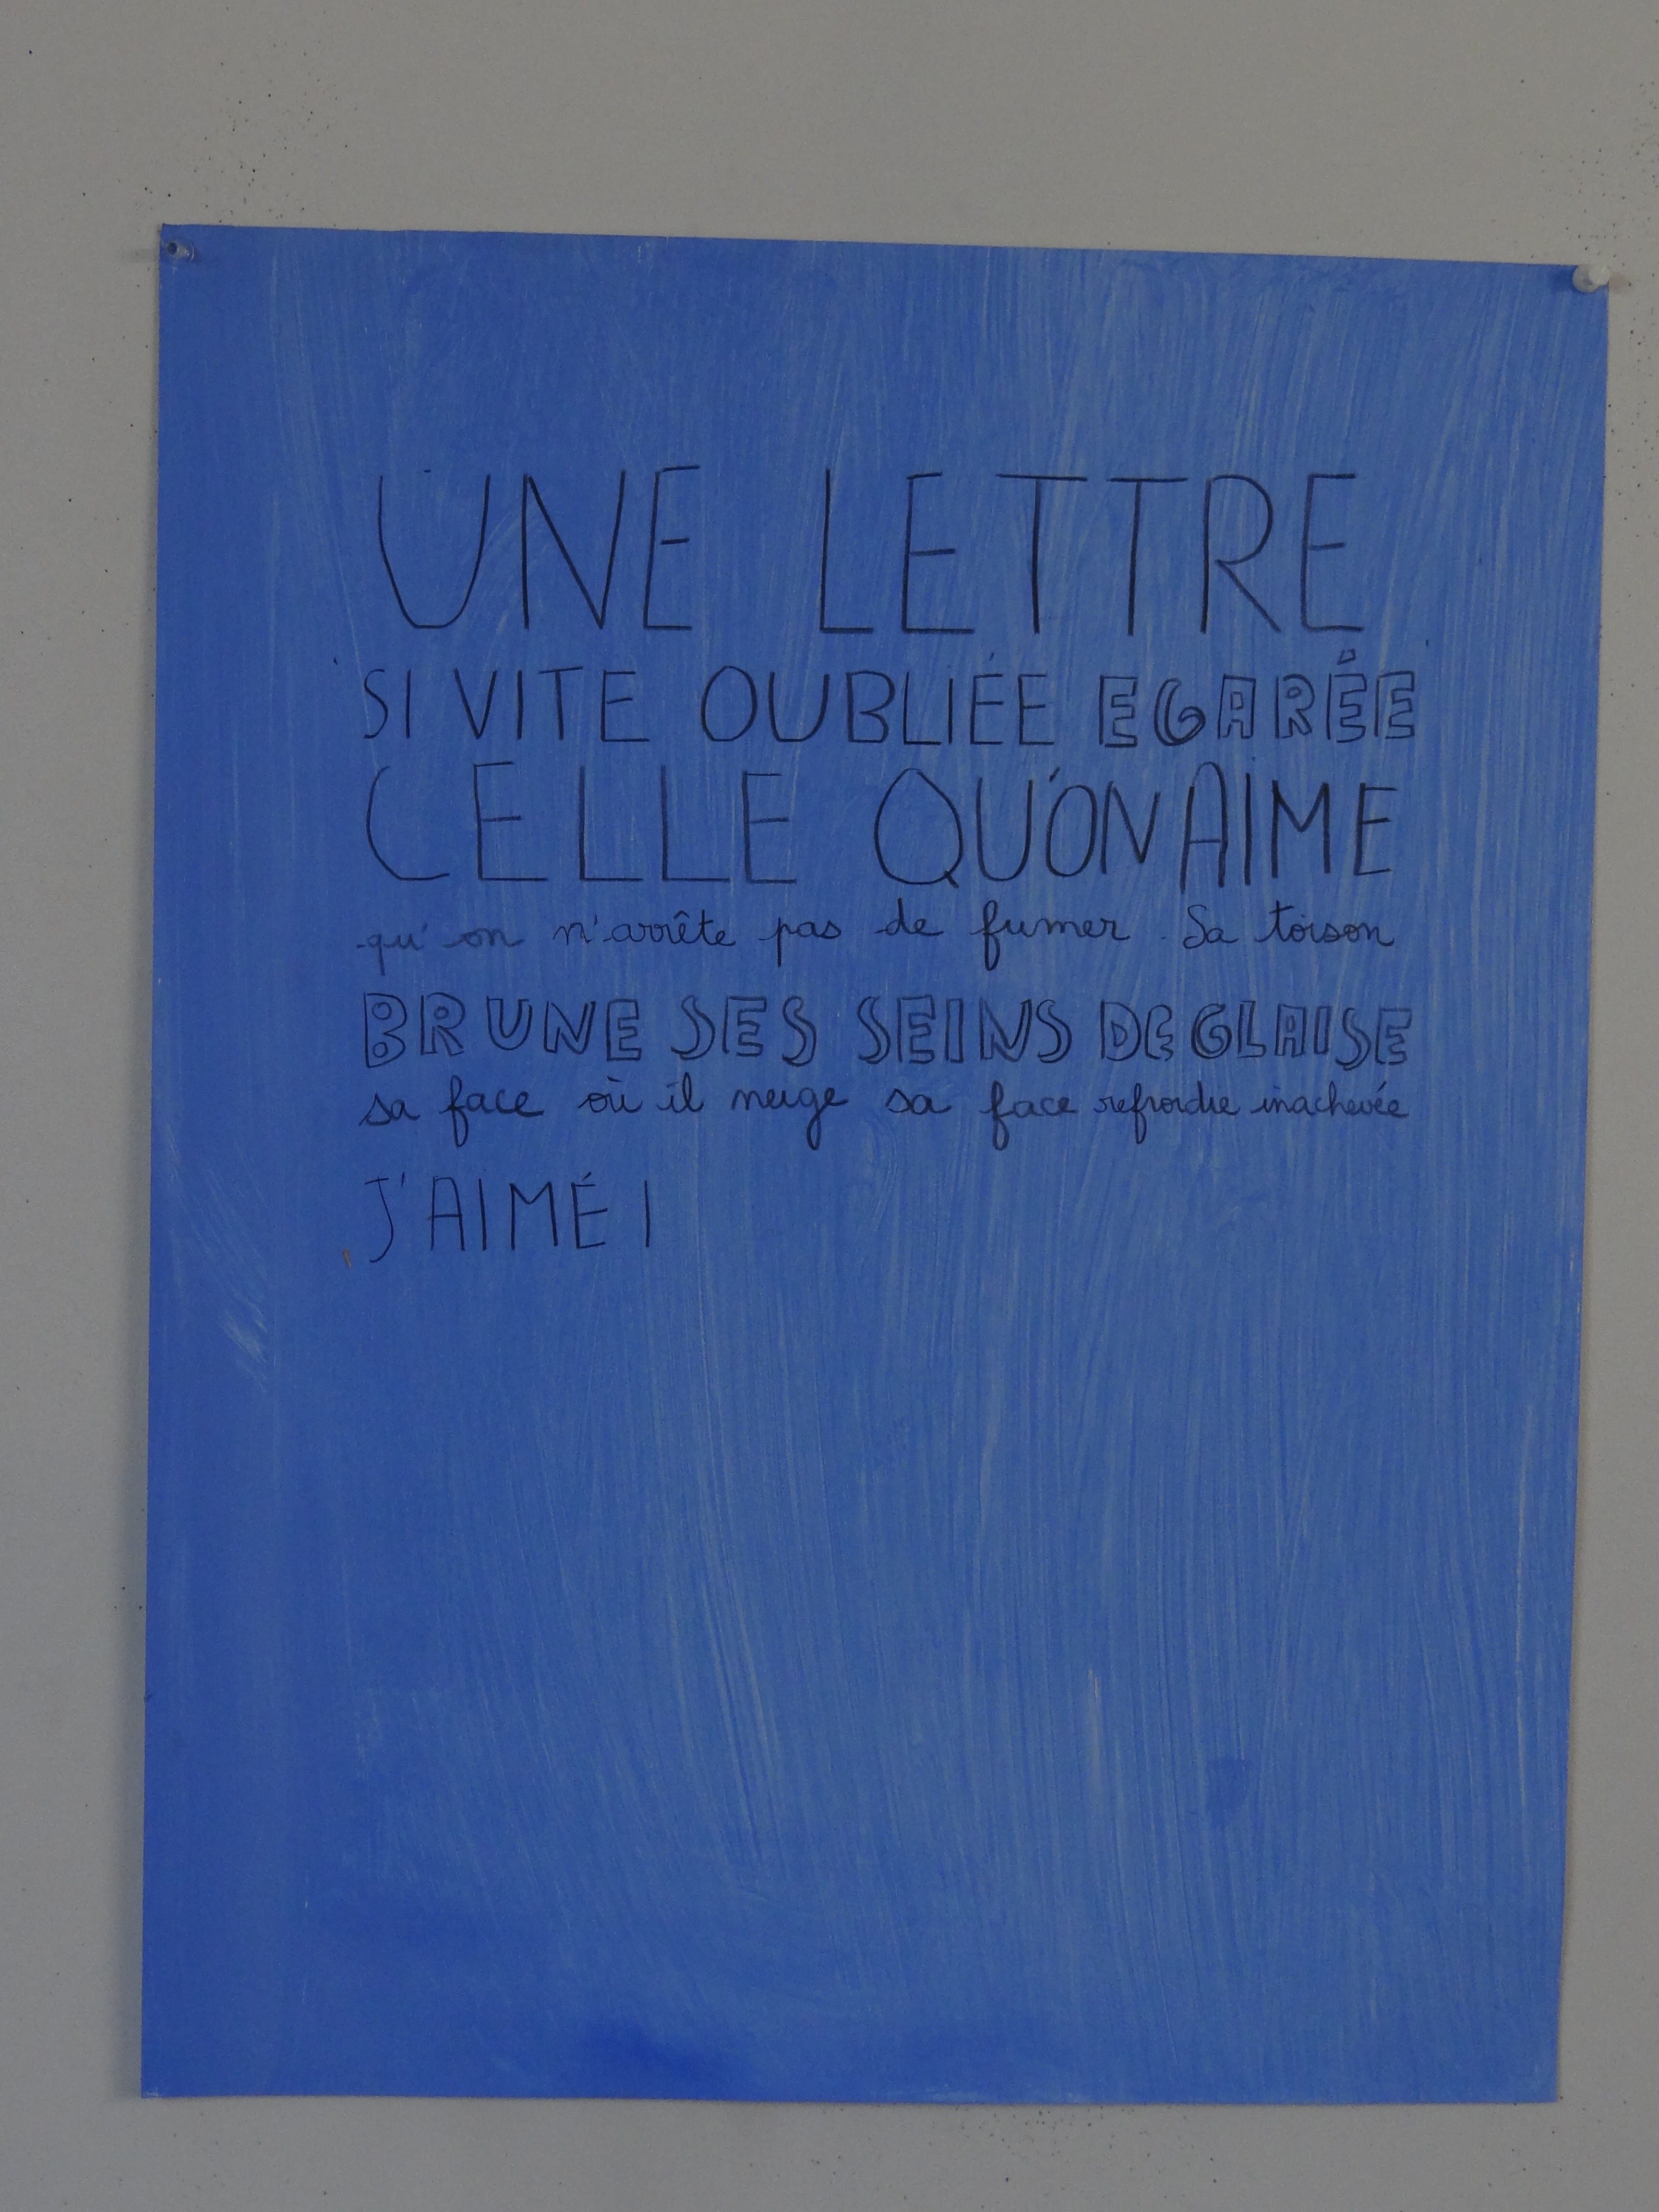 UNE LETTRE
SI VITE OUBLIÉE EGARÉE
CELLE QU'ON AIME
qu'on n'arrête pas de fumer. Sa toison
BRUNE SES SEINS DE GLAISE
sa face où il neige sa face refroidie inachevée
J'AIMÉ I